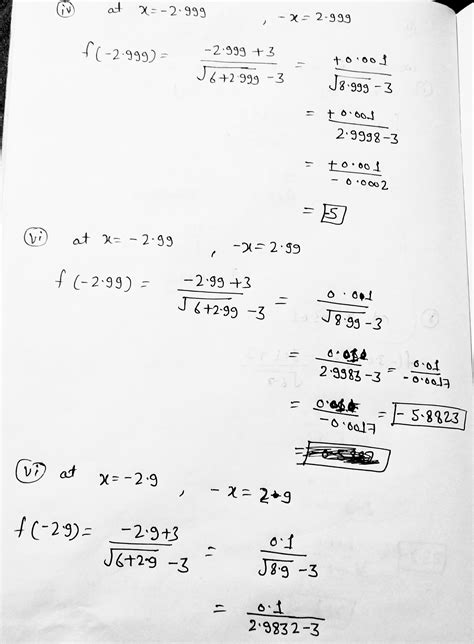 (iv) at x=-2.999 , -x=2.999
f(-2.999)= (-2.999+3)/(√(6+2.999) -3) = (+0.001)/(√8.999 -3)
= (+0.001)/(2.9998-3)
= (+0.001)/(-0.0002)
= -5
(vi) at x=-2.99 , -x=2.99
f(-2.99) = (-2.99+3)/(√(6+2.99) -3) = (0.01)/(√8.99 -3)
= /(2.9983-3) = (0.01)/(-0.0017)
= /(-0.0017) = -5.8823
=
(vi) at x=-2.9 , -x=2.9
f(-2.9)= (-2.9+3)/(√(6+2.9) -3) = (0.1)/(√8.9 -3)
= (0.1)/(2.9832-3)